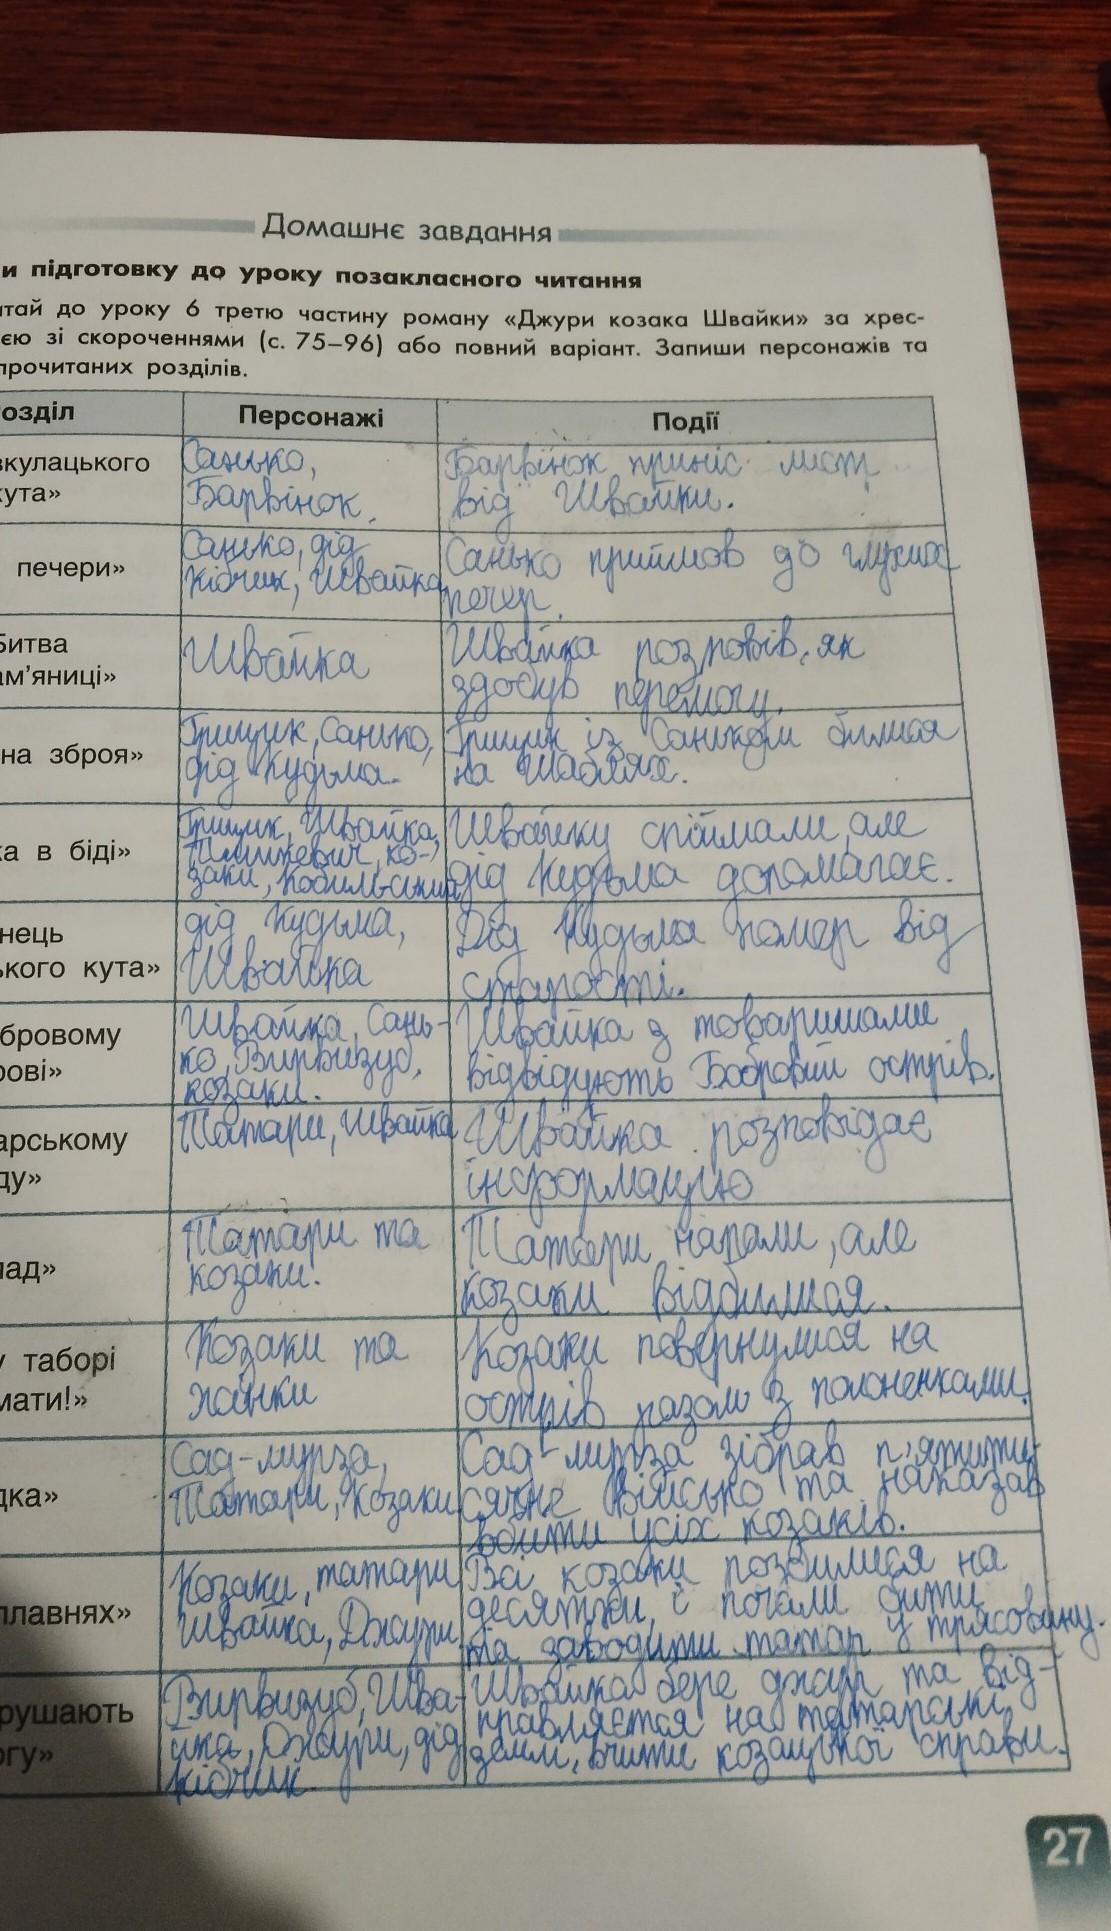 Домашнє завдання
и підготовку до уроку позакласного читання
итай до уроку 6 третю частину роману «Джури козака Швайки» за хрес-
єю зі скороченнями (с. 75–96) або повний варіант. Запиши персонажів та
прочитаних розділів.
озділ
Персонажі
Події
вкулацького
кута»
Санько,
Барвінок.
Барвінок приніс лист
від Швайки.
печери»
Санько, дід
Кібчик, Швайка
Санько прийшов до глухих
печер.
Битва
ам'яниці»
Швайка
Швайка розповів, як
здобув перемогу.
на зброя»
Грицик, Санько,
дід Кудьма.
Грицик із Саньком билися
на шаблях.
ка в біді»
Грицик, Швайка,
Тишкевич, ко-
заки, Кобильський
Швайку спіймали, але
дід Кудьма допомагає.
нець
ького кута»
дід Кудьма,
Швайка
Дід Кудьма помер від
старості.
бровому
рові»
Швайка, Сань-
ко, Вирвизуб,
козаки.
Швайка з товаришами
відвідують Бобровий острів.
арському
ду»
Татари, Швайка
Швайка розповідає
інформацію
пад»
Татари та
козаки.
Татари напали, але
козаки відбилися.
у таборі
мати!»
Козаки та
жінки
Козаки повернулися на
острів разом з полоненками.
дка»
Сад-мурза,
Татари, Козаки
Сад-мурза зібрав п'ятити-
сячне військо та наказав
вбити усіх козаків.
плавнях»
Козаки, татари
Швайка, Джури
Всі козаки розбилися на
десятки, і почали бити
та заводити татар у трясовину.
рушають
огу»
Вирвизуб, Шва-
йка, Джури, дід
Кібчик.
Швайка бере джур та від-
правляється на татарські
землі, вчити козацької справи.
27